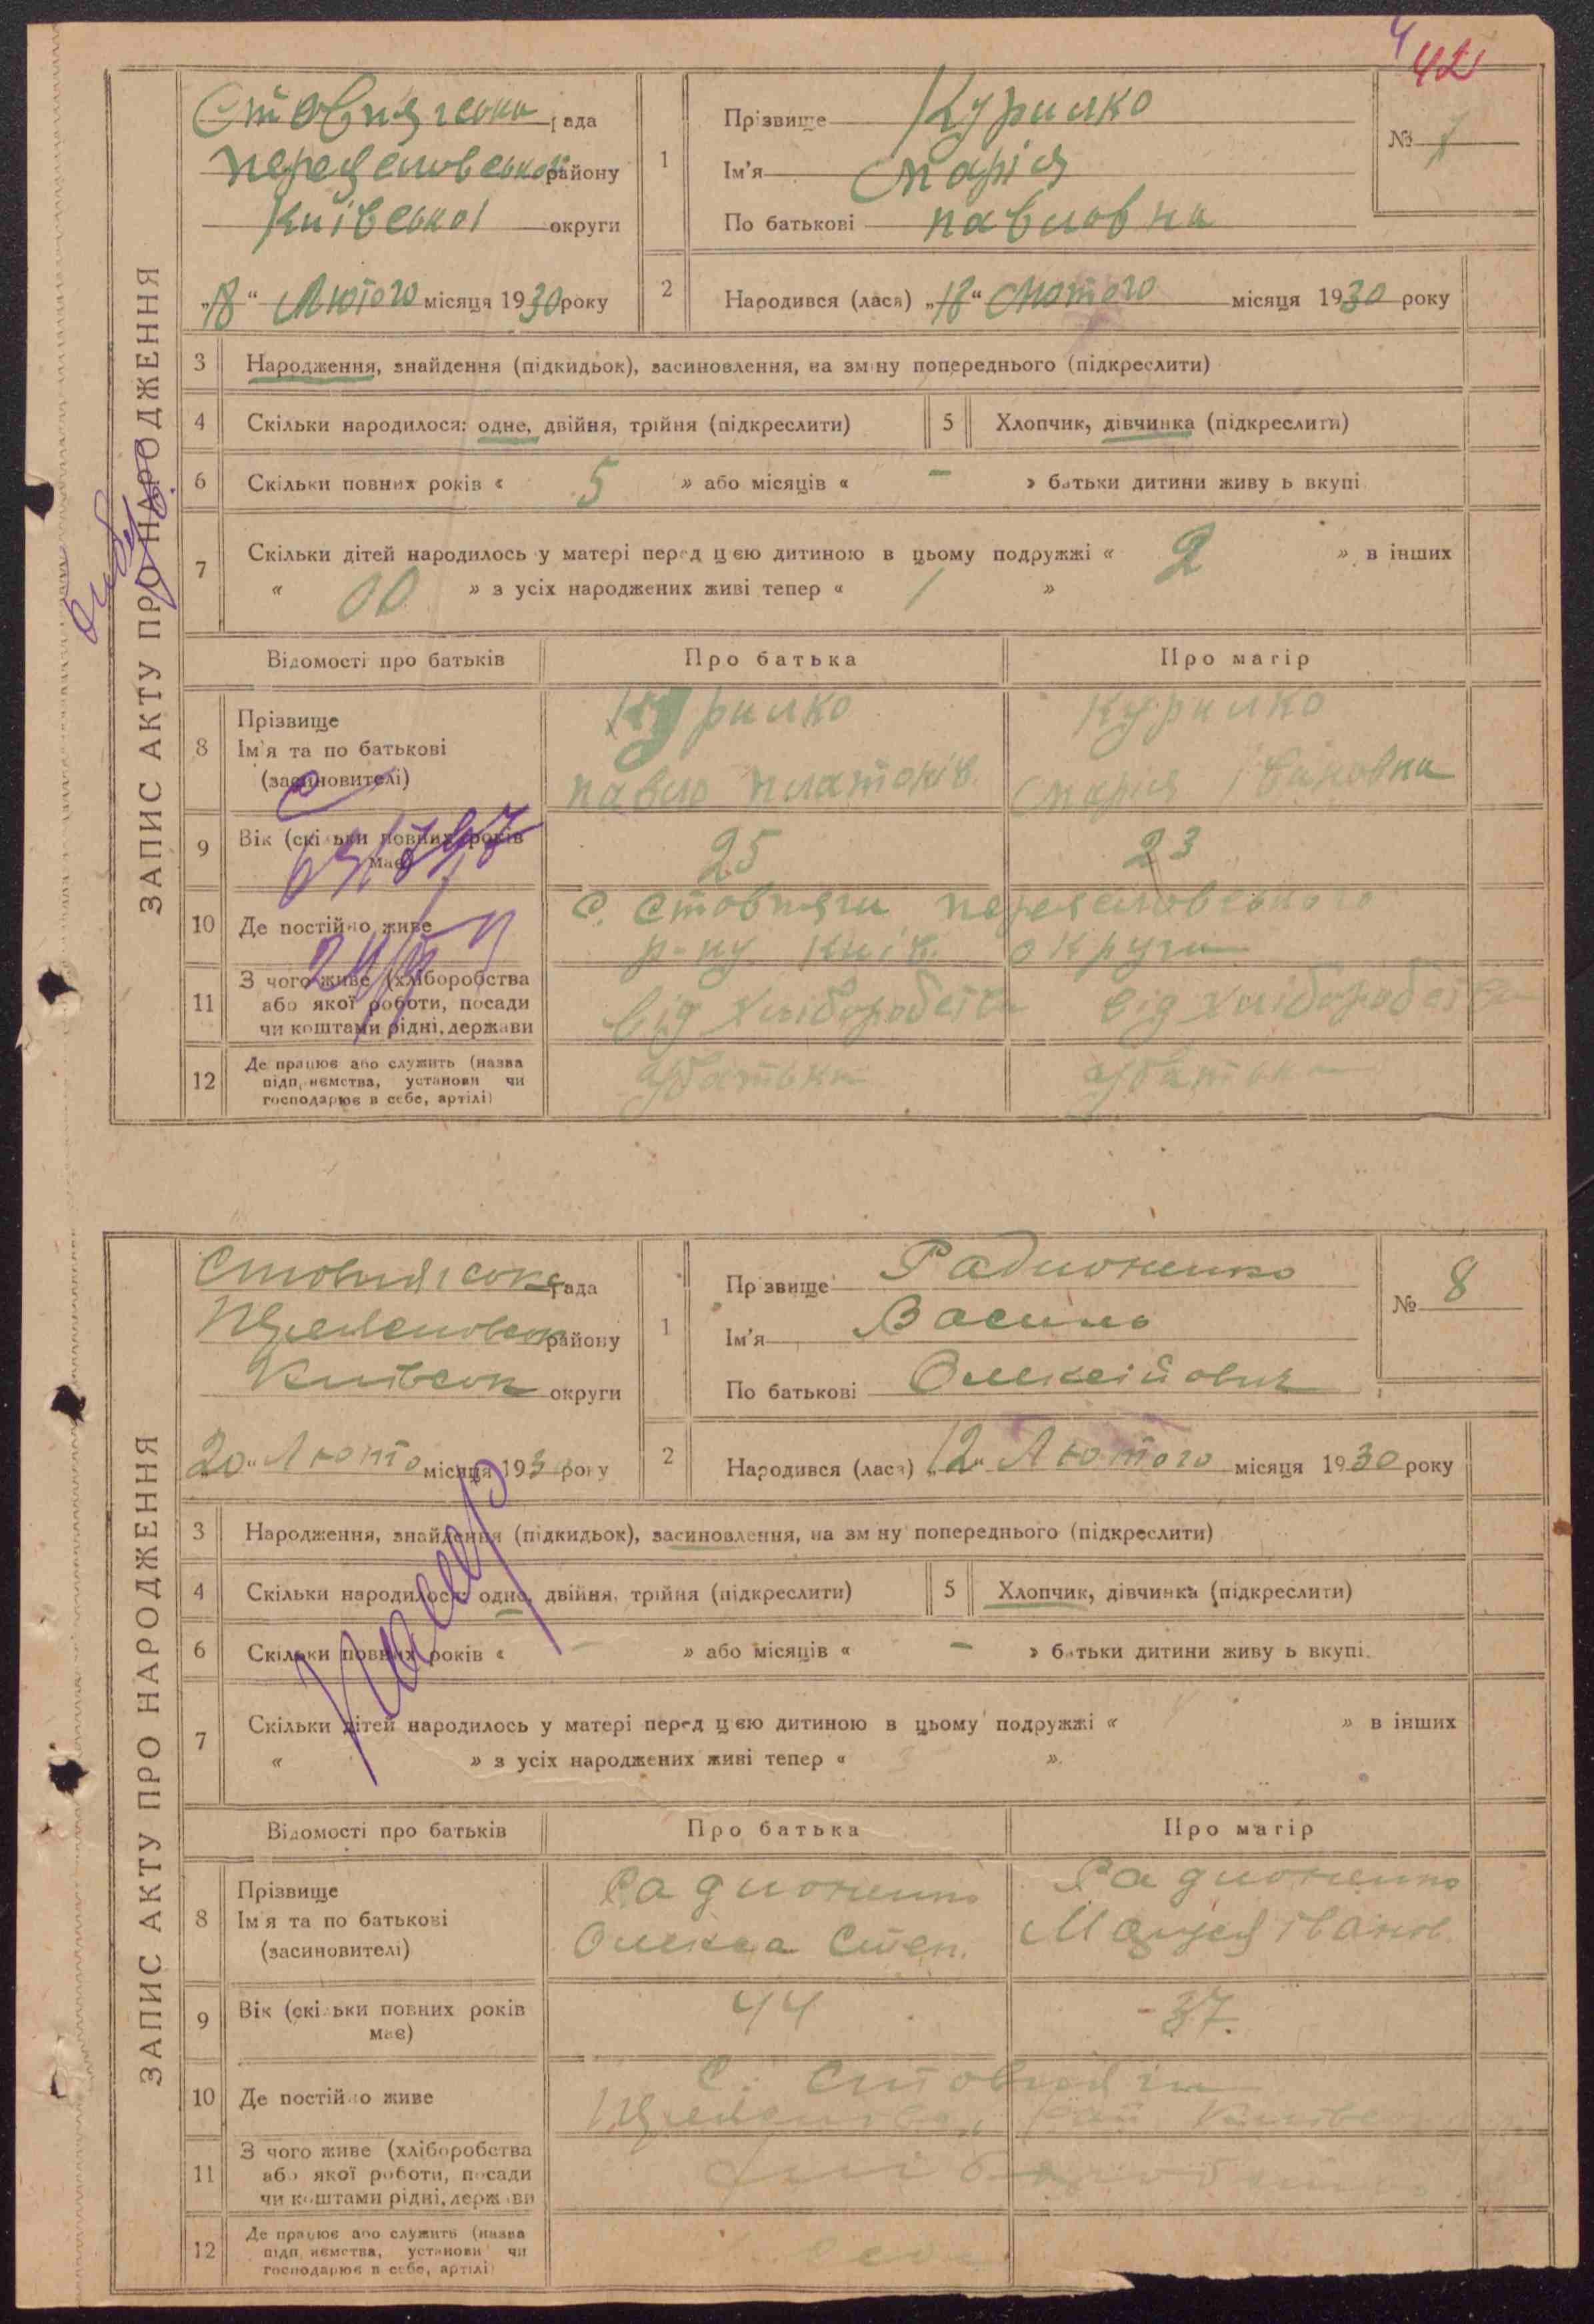 42
ЗАПИС АКТУ ПРО НАРОДЖЕННЯ
рада
району
Київської округи
„18“ Лютого місяця 1930 року
1
Прізвище Курилко
Ім'я Марія
По батькові Павловна
№ 7
2
Народився (лася) „18“ Лютого місяця 1930 року
3 Народження, знайдення (підкидьок), засиновлення, на зміну попереднього (підкреслити)
4 Скільки народилося: одне, двійня, трійня (підкреслити)
5 Хлопчик, дівчинка (підкреслити)
6 Скільки повних років « 5 » або місяців « – » батьки дитини живуть вкупі
7 Скільки дітей народилось у матері перед цією дитиною в цьому подружжі « 2 » в інших
« 00 » з усіх народжених живі тепер « 1 »
Відомості про батьків
Про батька
Про матір
8 Прізвище
Ім'я та по батькові
(засиновителі)
Курилко
Павло Платонів.
Курилко
Марія Івановна
9 Вік (скільки повних років
має)
25
23
10 Де постійно живе
с. Стовпяги
р-ну Київ. округи
11 З чого живе (хліборобства
або якої роботи, посади
чи коштами рідні, держави
від хліборобства
від хліборобства
12 Де працює або служить (назва
підприємства, установи чи
господарює в себе, артілі)
у батька
у батька
ЗАПИС АКТУ ПРО НАРОДЖЕННЯ
рада
району
Київськ округи
20 „Люто місяця 1930 року
1
Прізвище Радионенко
Ім'я Василь
По батькові Олексійович
№ 8
2
Народився (лася) „12“ Лютого місяця 1930 року
3 Народження, знайдення (підкидьок), засиновлення, на зміну попереднього (підкреслити)
4 Скільки народилося: одне, двійня, трійня (підкреслити)
5 Хлопчик, дівчинка (підкреслити)
6 Скільки повних років « – » або місяців « – » батьки дитини живуть вкупі.
7 Скільки дітей народилось у матері перед цією дитиною в цьому подружжі « » в інших
« » з усіх народжених живі тепер « ».
Відомості про батьків
Про батька
Про матір
8 Прізвище
Ім'я та по батькові
(засиновителі)
Радионенко
Олекса Степ.
Радионенко
Іванов.
9 Вік (скільки повних років
має)
44
37.
10 Де постійно живе
с. Стовпяги
11 З чого живе (хліборобства
або якої роботи, посади
чи коштами рідні, держави
12 Де працює або служить (назва
підприємства, установи чи
господарює в себе, артілі)